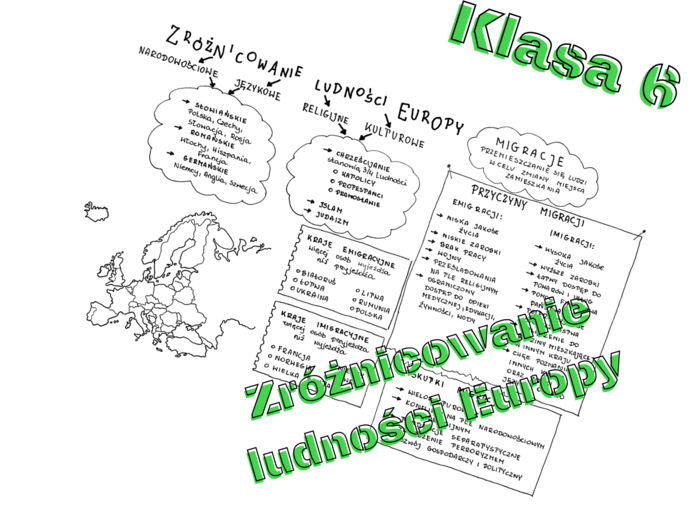 Klasa 6
ZRÓŻNICOWANIE LUDNOŚCI EUROPY
NARODOWOŚCIOWE
JĘZYKOWE
RELIGIJNE
KULTUROWE
SŁOWIAŃSKIE
Polska, Czechy,
Słowacja, Rosja
ROMAŃSKIE
Włochy, Hiszpania,
Francja
GERMAŃSKIE
Niemcy, Anglia, Szwecja
CHRZEŚCIJANIE
stanowią 3/4 ludności
KATOLICY
PROTESTANCI
PRAWOSŁAWIE
ISLAM
JUDAIZM
MIGRACJE
PRZEMIESZCZANIE SIĘ LUDZI
W CELU ZMIANY MIEJSCA
ZAMIESZKANIA
KRAJE EMIGRACYJNE
więcej osób wyjeżdża
niż przyjeżdża
BIAŁORUŚ
ŁOTWA
UKRAINA
LITWA
RUMUNIA
POLSKA
KRAJE IMIGRACYJNE
więcej osób przyjeżdża
niż wyjeżdża
FRANCJA
NORWEGIA
WIELKA
PRZYCZYNY MIGRACJI
EMIGRACJI:
NISKA JAKOŚĆ
ŻYCIA
NISKIE ZAROBKI
BRAK PRACY
WOJNY
PRZEŚLADOWANIA
NA TLE RELIGIJNYM
OGRANICZONY
DOSTĘP DO OPIEKI
MEDYCZNEJ, EDUKACJI,
ŻYWNOŚCI, WODY
IMIGRACJI:
WYSOKA JAKOŚĆ
ŻYCIA
WYŻSZE ZAROBKI
ŁATWY DOSTĘP DO
TOWARÓW I USŁUG
RODZINY MIESZKAJĄCEJ
W INNYM KRAJU
CHĘĆ POZNANIA
INNYCH
ORAZ
SKUTKI
NA TLE NARODOWOŚCIOWYM
SEPARATYSTYCZNE
TERRORYZMEM
ROZWÓJ GOSPODARCZY I POLITYCZNY
Zróżnicowanie
ludności Europy